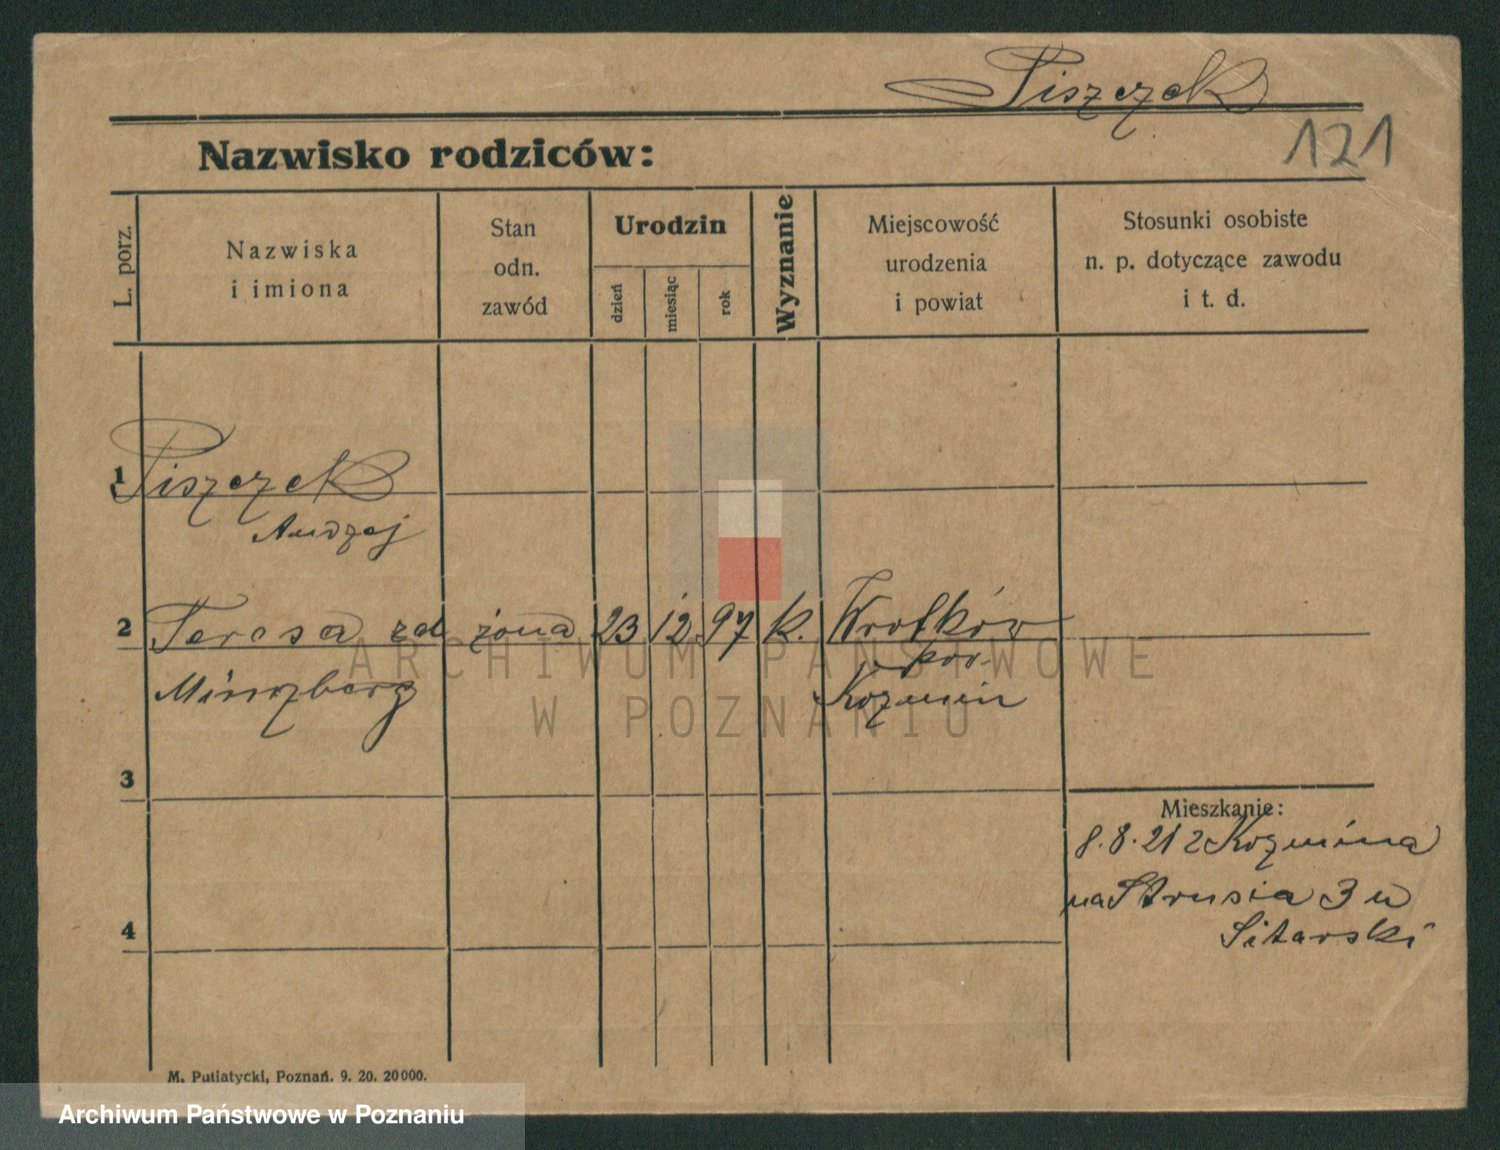 Piszczek
121
Nazwisko rodziców:
L. porz.
Nazwiska
i imiona
Stan
odn.
zawód
Urodzin
dzień
miesiąc
rok
Wyznanie
Miejscowość
urodzenia
i powiat
Stosunki osobiste
n. p. dotyczące zawodu
i t. d.
1 Piszczek
Andrzej
2 Teresa zd żona 23 12 97 k. Wrotków
pow
Koźmin
3
4
Mieszkanie:
8.8.21 z Koźmina
na Strusia 3 u
Sitarski
M. Putiatycki, Poznań. 9. 20. 20000.
ARCHIWUM PAŃSTWOWE
W POZNANIU
Archiwum Państwowe w Poznaniu